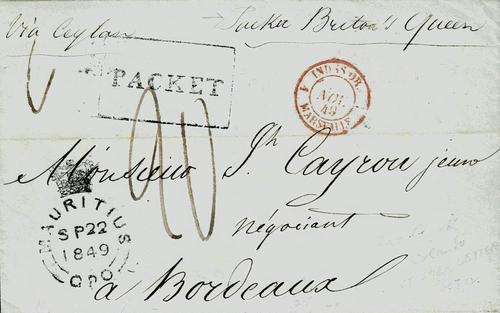 Via Ceylan
Briton's Queen
PACKET
INDES OR.
4
NOV.
49
MARSEILLE
20
Monsieur Jph Cayrou jeune
négociant
à Bordeaux
MAURITIUS
SP22
1849
GPO